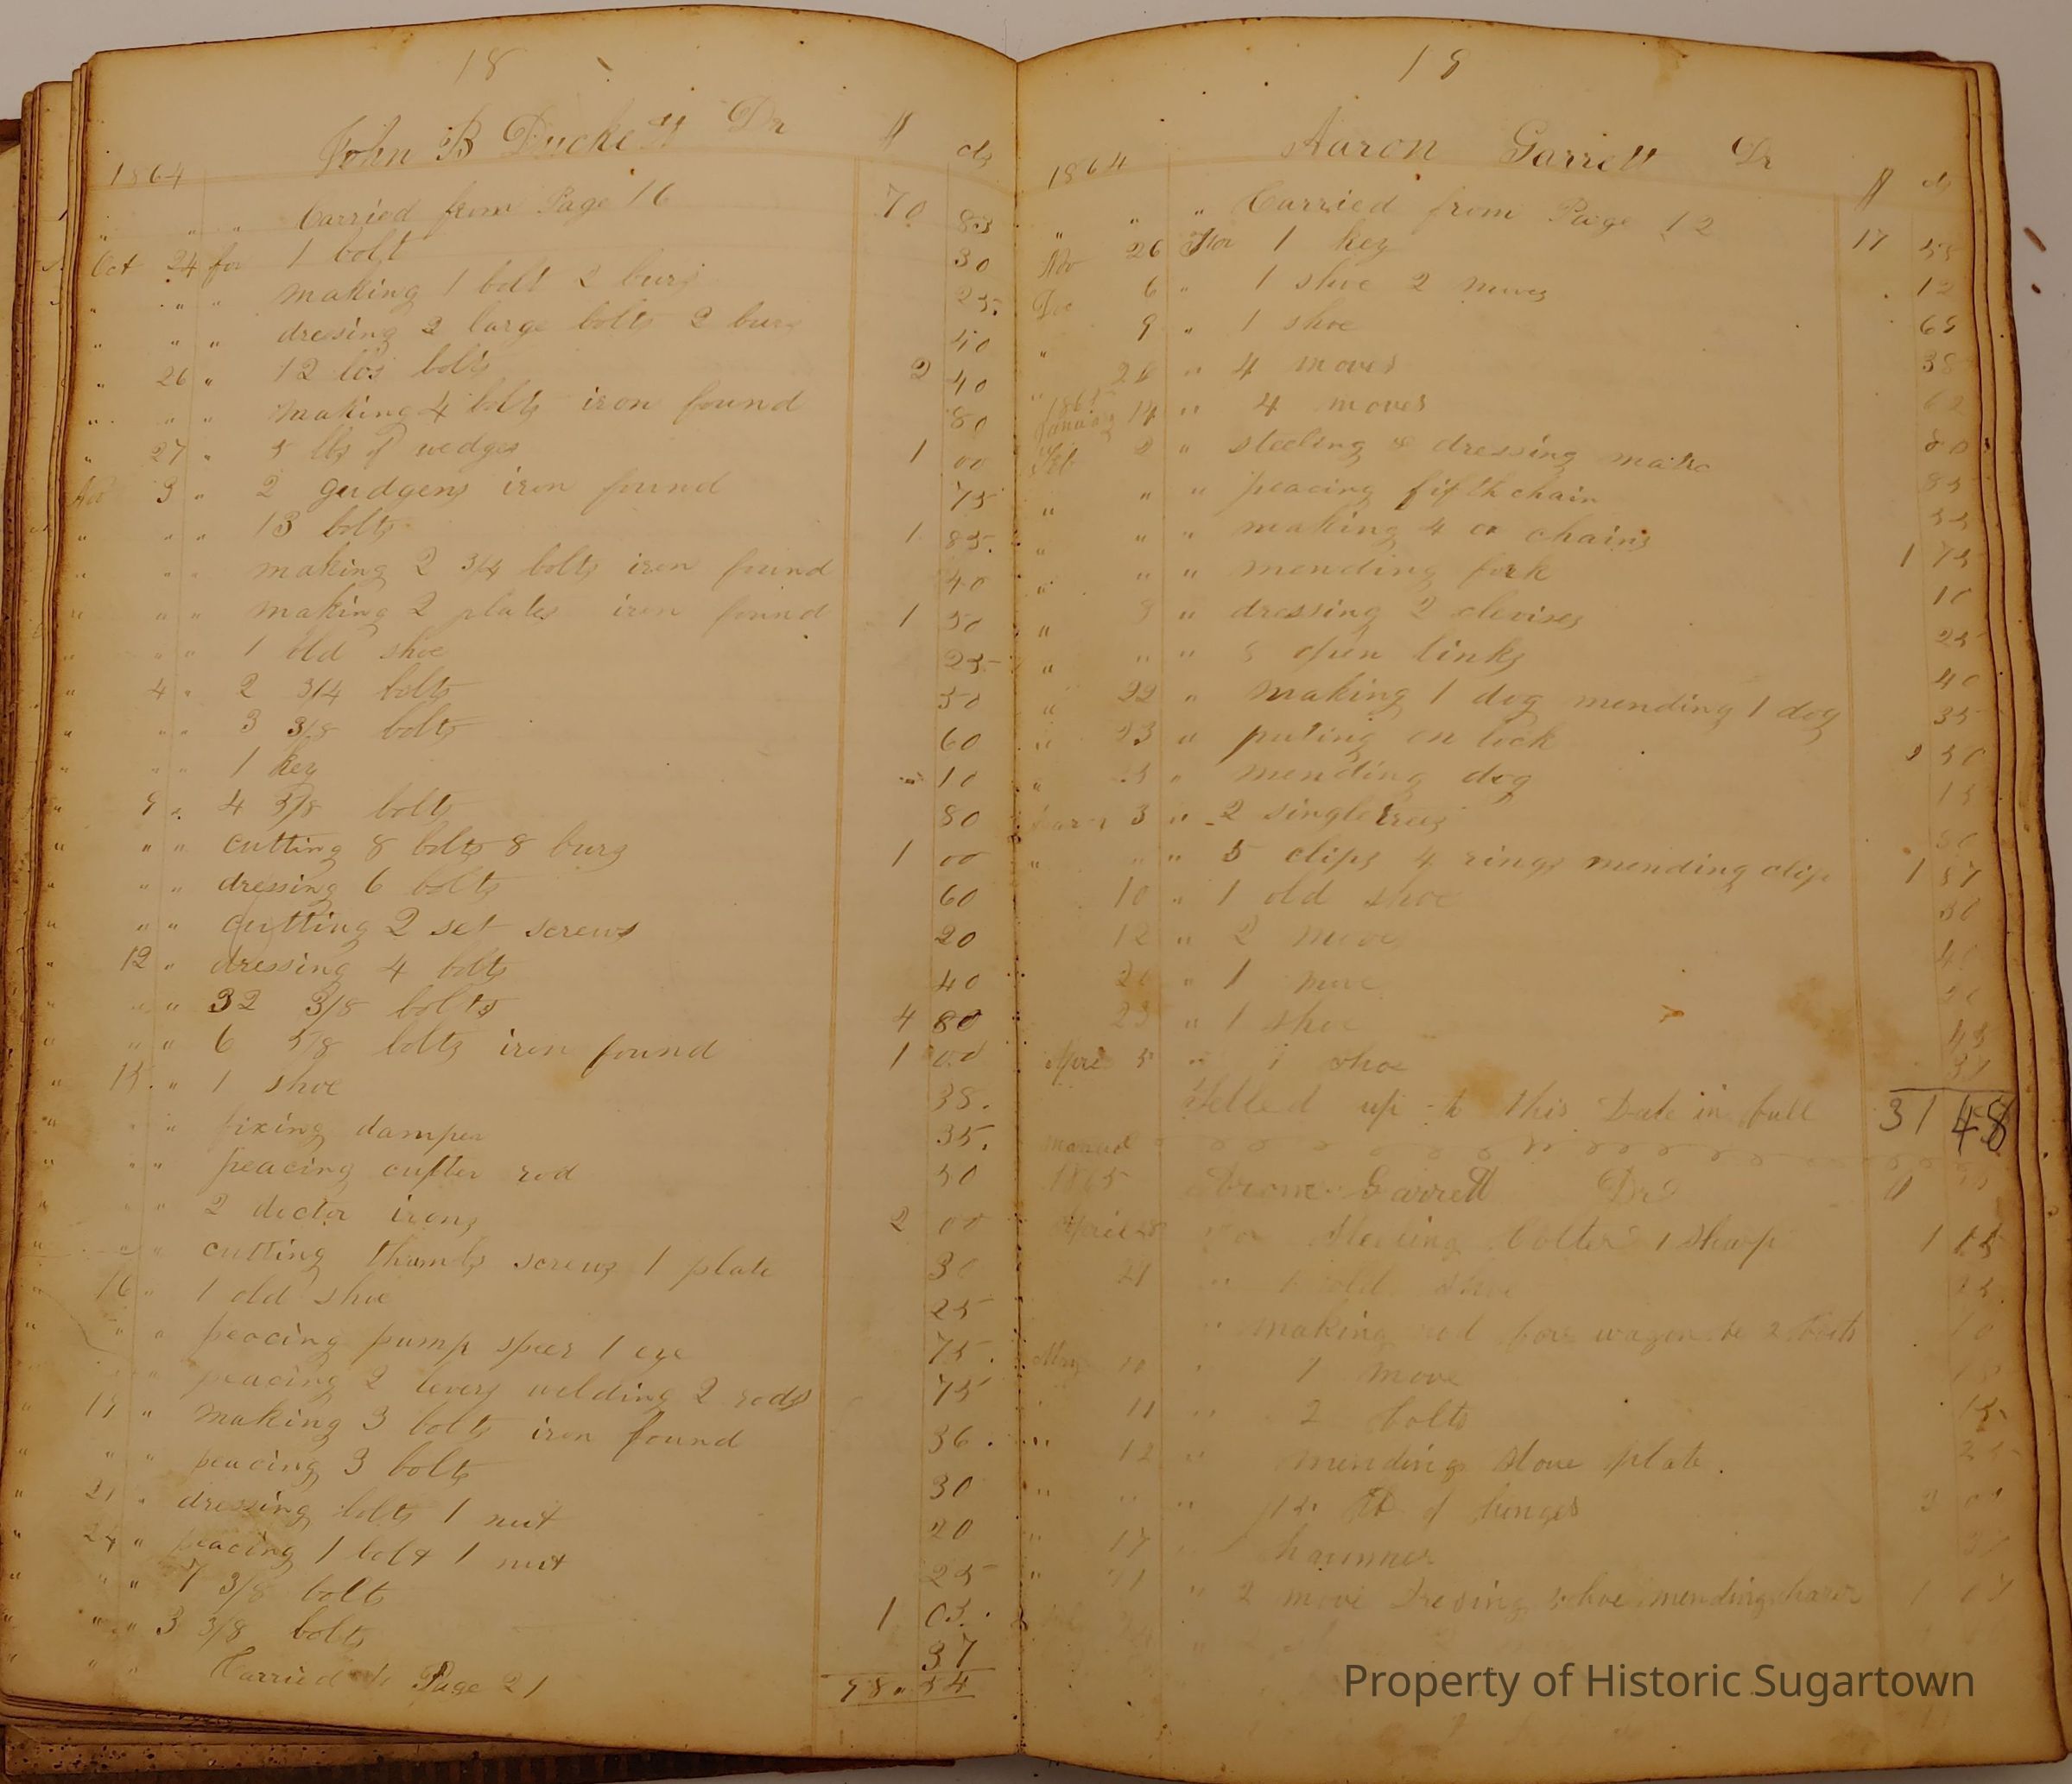 18
John B Duckett Dr $ cts
1864
" " " Carried from Page 16 70 83
Oct 24 for 1 bolt 30
" " " making 1 bolt 2 burs 25
" " " dressing 2 large bolts 2 burs 40
" 26 " 12 bolts 2 40
" " " making 4 bolts iron found 80
" 27 " 5 lbs of wedges 1 00
Nov 3 " 2 gudgens iron found 75
" " " 13 bolts 1 85
" " " making 2 3/4 bolts iron found 40
" " " making 2 plates iron found 1 50
" " " 1 old shoe 25
" 4 " 2 3/4 bolts 50
" " " 3 3/8 bolts 60
" " " 1 key 10
" 9 " 4 5/8 bolts 80
" " " cutting 8 bolts 8 burs 1 00
" " " dressing 6 bolts 60
" " " cutting 2 set screws 20
" 12 " dressing 4 bolts 40
" " " 32 3/8 bolts 4 80
" " " 6 5/8 bolts iron found 1 00
" 15 " 1 shoe 38
" " " fixing damper 35
" " " peacing cutter rod 50
" " " 2 doctor irons 2 00
" " " cutting thumbs screws 1 plate 30
" 16 " 1 old shoe 25
" " " peacing pump speer 1 eye 75
" " " peacing 2 levers welding 2 rods 75
" " making 3 bolts iron found 36
" " " peacing 3 bolts 30
" 21 " dressing bolts 1 nut 20
" 24 " peacing 1 bolt 1 nut 25
" " " 7 3/8 bolt 1 05
" " " 3 3/8 bolts 37
" " " Carried to Page 21 98 54
19
Aaron Garrett Dr $ cts
1864
" " " Carried from Page 12 17 55
Nov 26 For 1 key 12
Dec 6 " 1 shoe 2 moves 68
" 9 " 1 shoe 38
" " 4 moves 62
1865
January 14 " 4 moves 80
Feb 2 " steeling & dressing 85
" " " peacing fifth chain 55
" " " making 4 ox chains 1 75
" " " mending fork 10
" 8 " dressing 2 clevises 25
" " " 8 open links 40
" 22 " making 1 dog mending 1 dog 35
" 23 " puting on lock 2 50
" " mending dog 15
3 " 2 singletrees 50
" " " 5 clips 4 rings mending clip 1 87
10 " 1 old shoe 30
12 " 2 move 40
20 " 1 move 20
23 " 1 shoe
April 5 " 1 shoe 37
Setled up to this Date in full 31 48
1865 Garrett Dr $
April For steeling Colter 1 sharp 1
21 " 1 old shoe 25
" making rod for wagon 2 bolts
May " 1 move
" 11 " 2 bolts 15
" 12 " mending stove plate 25
" " " of hinges 3 00
" 17 " hammer
" " 2 move Dresing shoe mending 1
Property of Historic Sugartown